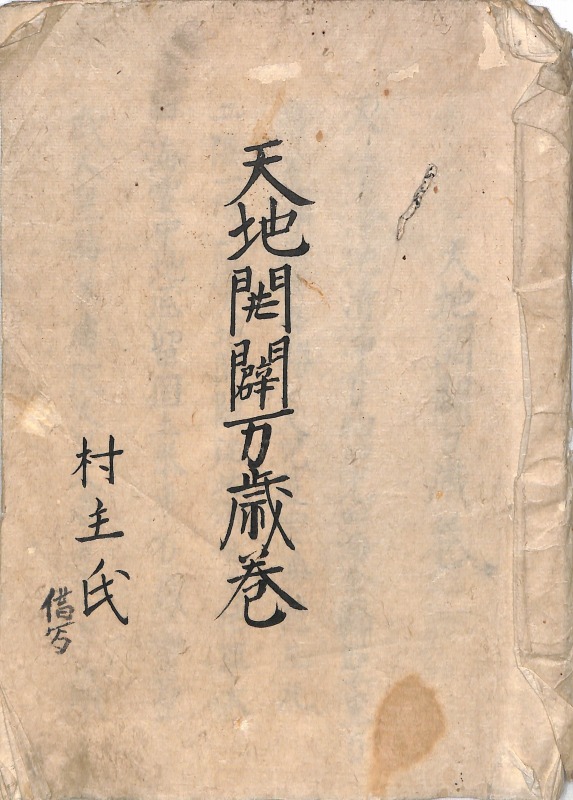 天地開闢万歳巻
村主氏
借写